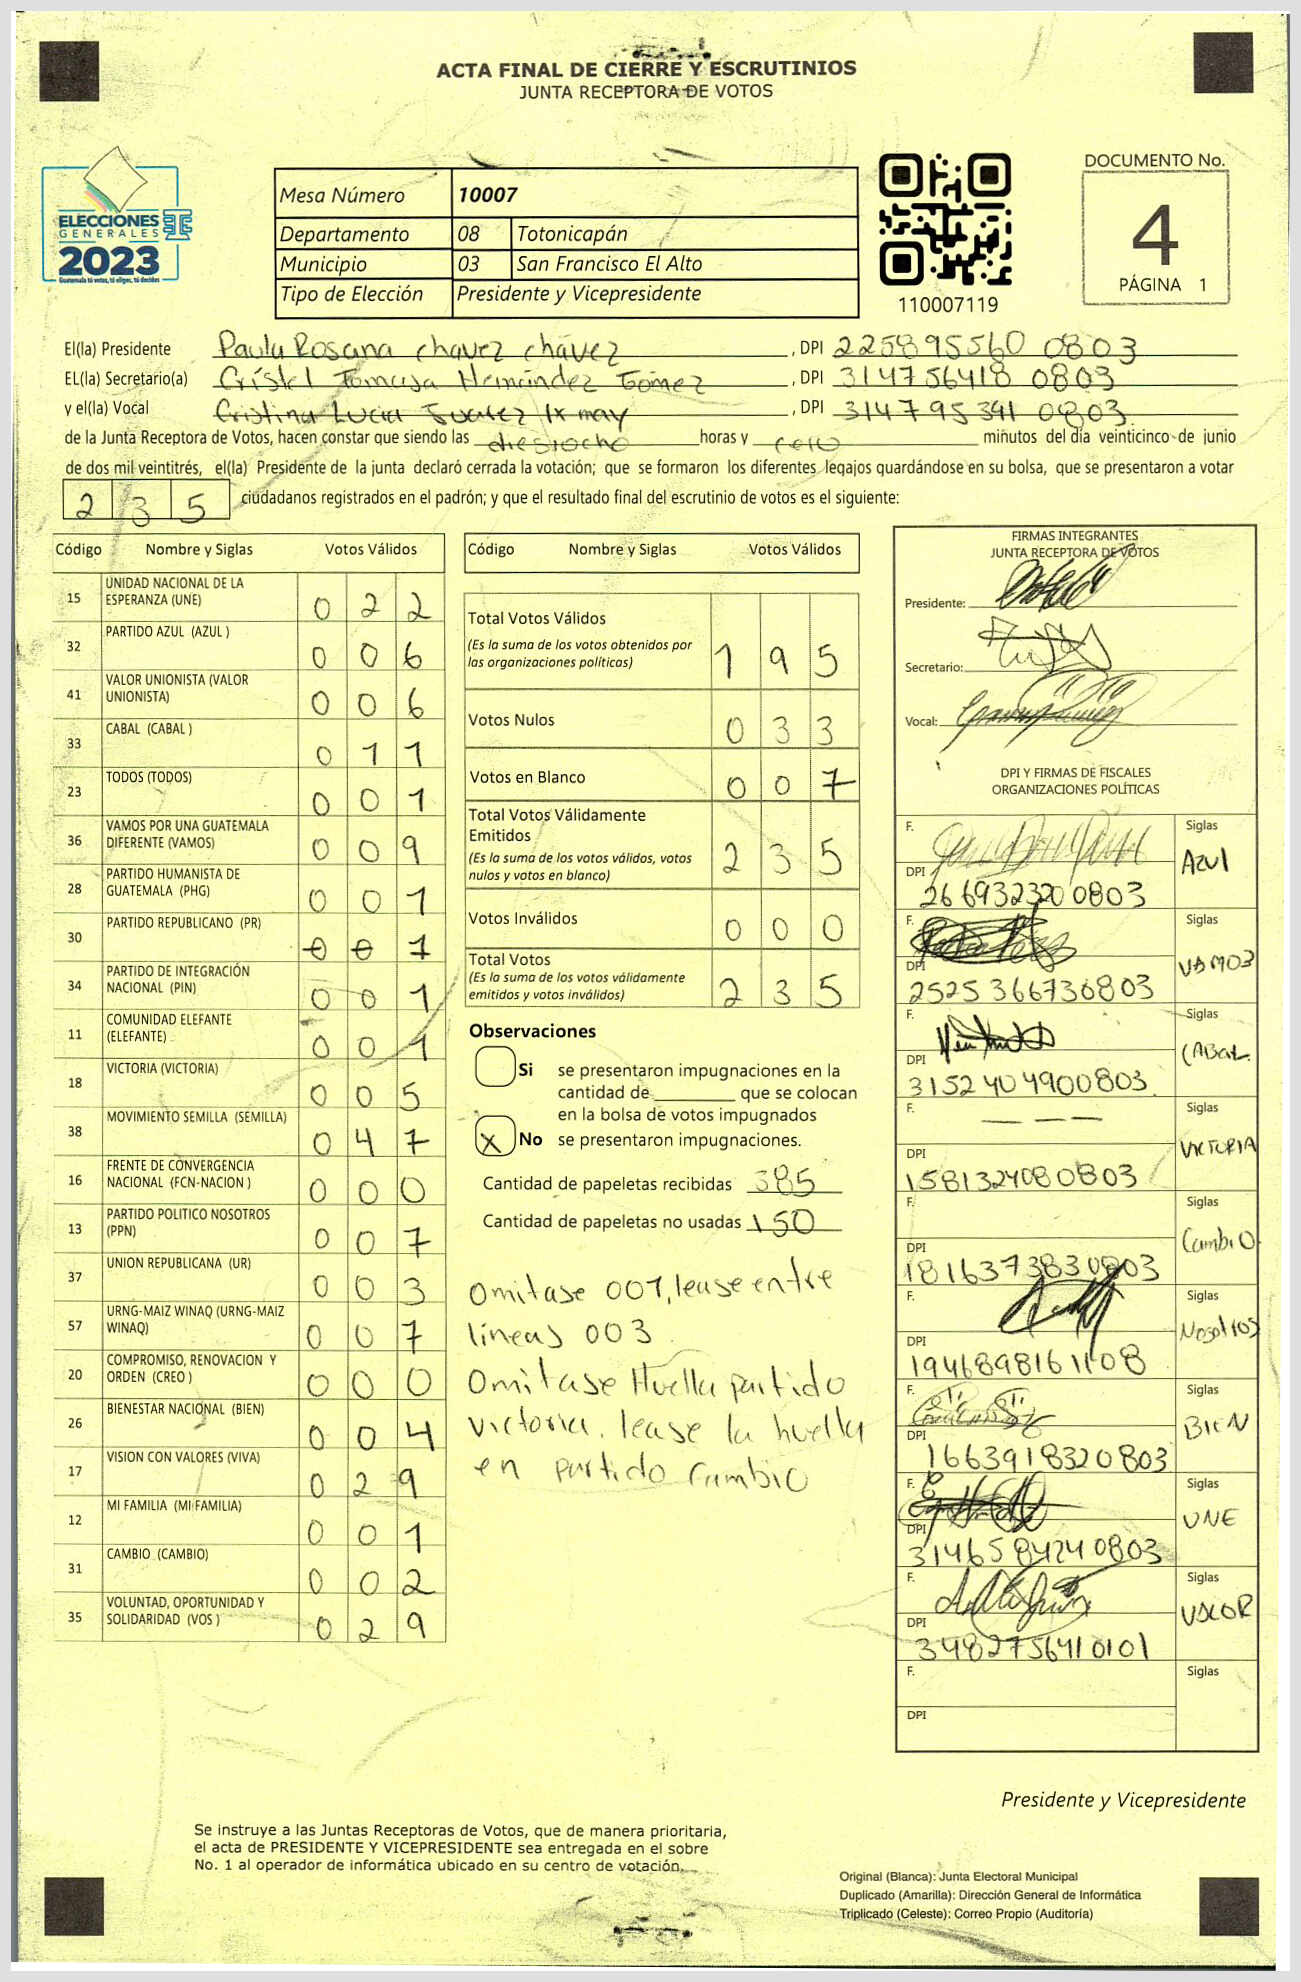 ACTA FINAL DE CIERRE Y ESCRUTINIOS
JUNTA RECEPTORA DE VOTOS
ELECCIONES
GENERALES
2023
Guatemala tú votas, tú eliges, tú decides
Mesa Número 10007
Departamento 08 Totonicapán
Municipio 03 San Francisco El Alto
Tipo de Elección Presidente y Vicepresidente
110007119
DOCUMENTO No.
4
PÁGINA 1
El(la) Presidente Paula Rosana chavez chávez , DPI 225895560 0803
EL(la) Secretario(a) Cristel Tomasa Hernández Gómez , DPI 314756418 0803
y el(la) Vocal Cristina Lucia Juarez Ixmay , DPI 314795391 0803
de la Junta Receptora de Votos, hacen constar que siendo las diesiocho horas y cero minutos del día veinticinco de junio
de dos mil veintitrés, el(la) Presidente de la junta declaró cerrada la votación; que se formaron los diferentes legajos guardándose en su bolsa, que se presentaron a votar
235 ciudadanos registrados en el padrón; y que el resultado final del escrutinio de votos es el siguiente:
Código Nombre y Siglas Votos Válidos
15 UNIDAD NACIONAL DE LA ESPERANZA (UNE) 022
32 PARTIDO AZUL (AZUL ) 006
41 VALOR UNIONISTA (VALOR UNIONISTA) 006
33 CABAL (CABAL ) 011
23 TODOS (TODOS) 001
36 VAMOS POR UNA GUATEMALA DIFERENTE (VAMOS) 009
28 PARTIDO HUMANISTA DE GUATEMALA (PHG) 001
30 PARTIDO REPUBLICANO (PR) 001
34 PARTIDO DE INTEGRACIÓN NACIONAL (PIN) 001
11 COMUNIDAD ELEFANTE (ELEFANTE) 001
18 VICTORIA (VICTORIA) 005
38 MOVIMIENTO SEMILLA (SEMILLA) 047
16 FRENTE DE CONVERGENCIA NACIONAL (FCN-NACION ) 000
13 PARTIDO POLITICO NOSOTROS (PPN) 007
37 UNION REPUBLICANA (UR) 003
57 URNG-MAIZ WINAQ (URNG-MAIZ WINAQ) 007
20 COMPROMISO, RENOVACION Y ORDEN (CREO ) 000
26 BIENESTAR NACIONAL (BIEN) 004
17 VISION CON VALORES (VIVA) 029
12 MI FAMILIA (MI FAMILIA) 001
31 CAMBIO (CAMBIO) 002
35 VOLUNTAD, OPORTUNIDAD Y SOLIDARIDAD (VOS ) 029
Código Nombre y Siglas Votos Válidos
Total Votos Válidos 195
(Es la suma de los votos obtenidos por
las organizaciones políticas)
Votos Nulos 033
Votos en Blanco 007
Total Votos Válidamente
Emitidos 235
(Es la suma de los votos válidos, votos
nulos y votos en blanco)
Votos Inválidos 000
Total Votos 235
(Es la suma de los votos válidamente
emitidos y votos inválidos)
Observaciones
Si se presentaron impugnaciones en la
cantidad de ________ que se colocan
en la bolsa de votos impugnados
X No se presentaron impugnaciones.
Cantidad de papeletas recibidas 385
Cantidad de papeletas no usadas 150
Omitase 007, lease entre
lineas 003
Omitase Huella partido
victoria, lease la huella
en partido Cambio
FIRMAS INTEGRANTES
JUNTA RECEPTORA DE VOTOS
Presidente:
Secretario:
Vocal:
DPI Y FIRMAS DE FISCALES
ORGANIZACIONES POLÍTICAS
F. Siglas AZUL
DPI 266932320 0803
F. Siglas VAMOS
DPI 2525366730803
F. Siglas CABAL
DPI 3152404900803
F. — — — Siglas VICTORIA
DPI 1581324080803
F. Siglas Cambio
DPI 1816373830803
F. Siglas Nosotros
DPI 1946898161108
F. Siglas BIEN
DPI 1663918320803
F. Siglas UNE
DPI 3146584240803
F. Siglas VALOR
DPI 3482756410101
F. Siglas
DPI
Presidente y Vicepresidente
Se instruye a las Juntas Receptoras de Votos, que de manera prioritaria,
el acta de PRESIDENTE Y VICEPRESIDENTE sea entregada en el sobre
No. 1 al operador de informática ubicado en su centro de votación.
Original (Blanca): Junta Electoral Municipal
Duplicado (Amarilla): Dirección General de Informática
Triplicado (Celeste): Correo Propio (Auditoría)